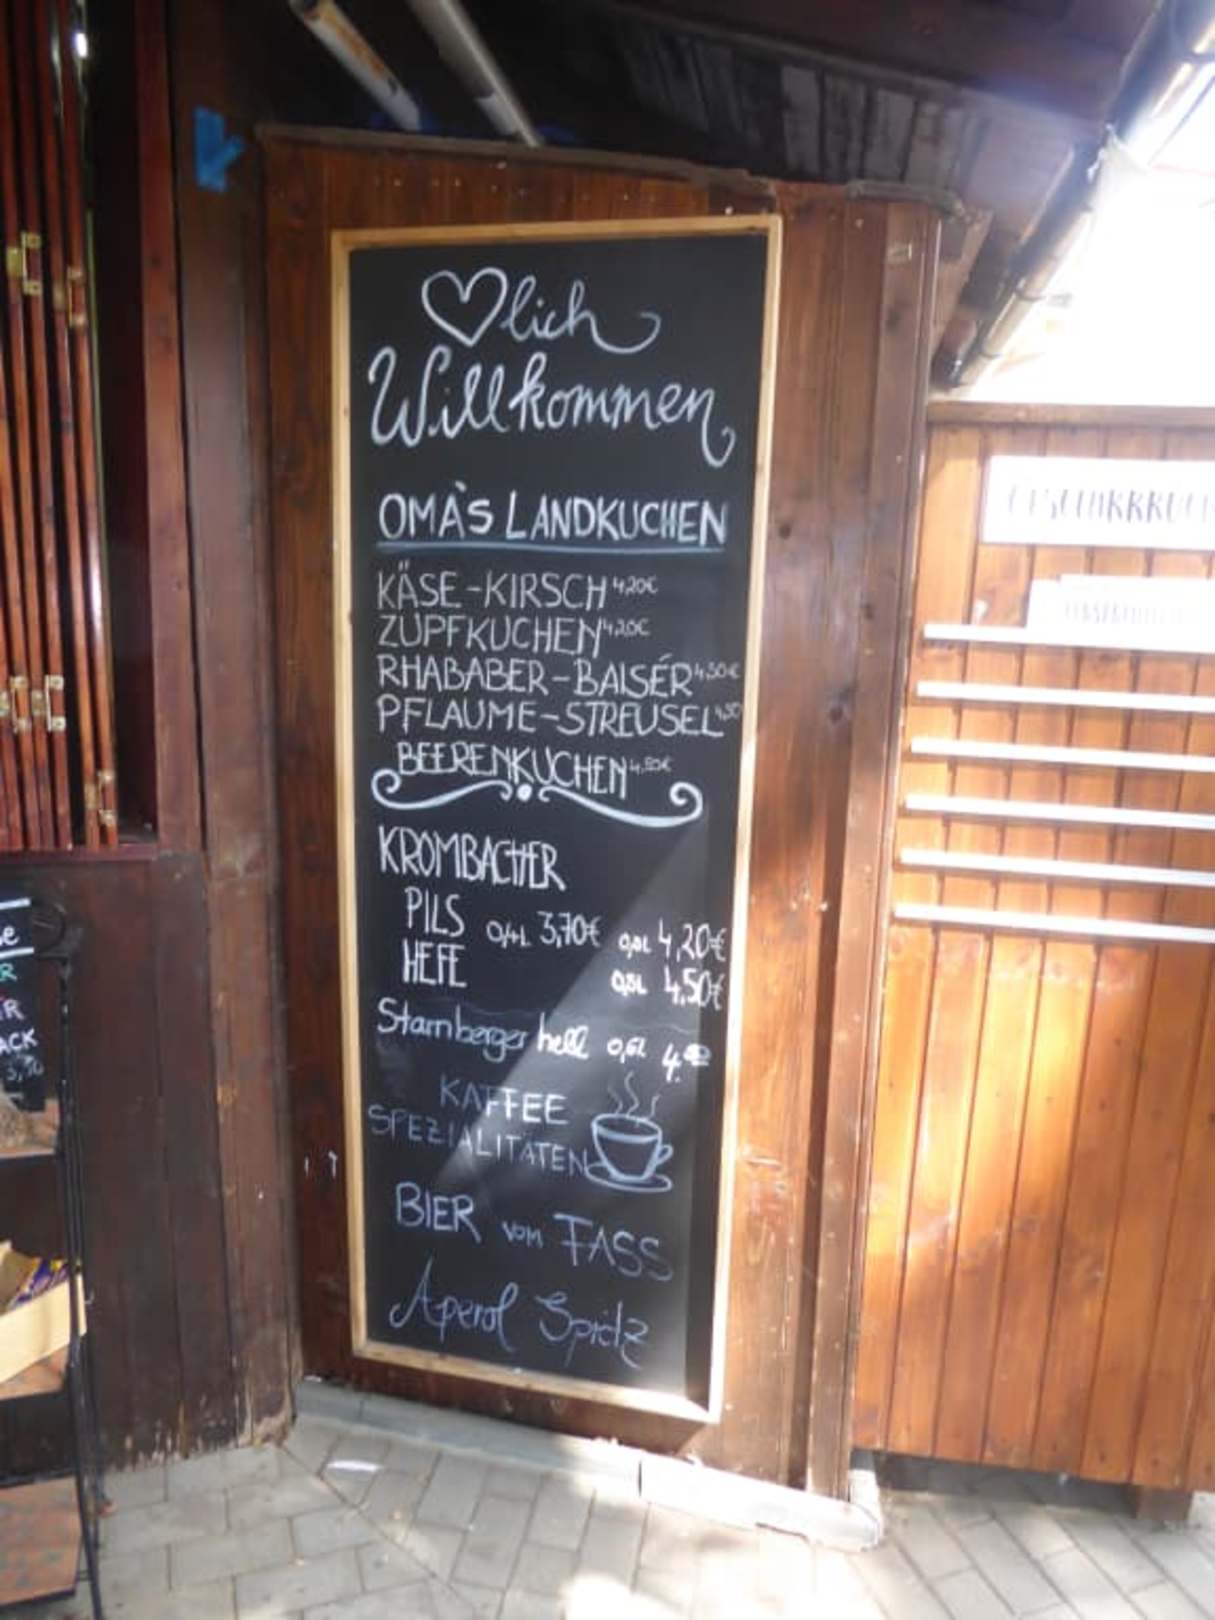 lich
Willkommen
OMA'S LANDKUCHEN
KÄSE-KIRSCH 4,20€
ZUPFKUCHEN 4,20€
RHABABER-BAISÉR 4,50€
PFLAUME-STREUSEL 4,50
BEERENKUCHEN 4,50€
KROMBACHER
PILS 0,4L 3,70€ 0,5L 4,20€
HEFE 0,5L 4,50€
Starnberger hell 0,5L 4.
KAFFEE
SPEZIALITÄTEN
BIER vom FASS
Aperol Spritz
ACK
3,50